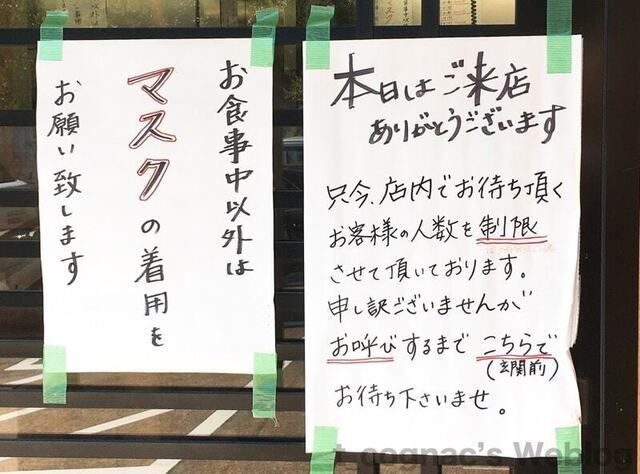 お食事中以外は
マスクの着用を
お願い致します
本日はご来店
ありがとうございます
只今、店内でお待ち頂く
お客様の人数を制限
させて頂いております。
申し訳ございませんが
お呼びするまでこちらで
(玄関前)
お待ち下さいませ。
cognac's Weblog